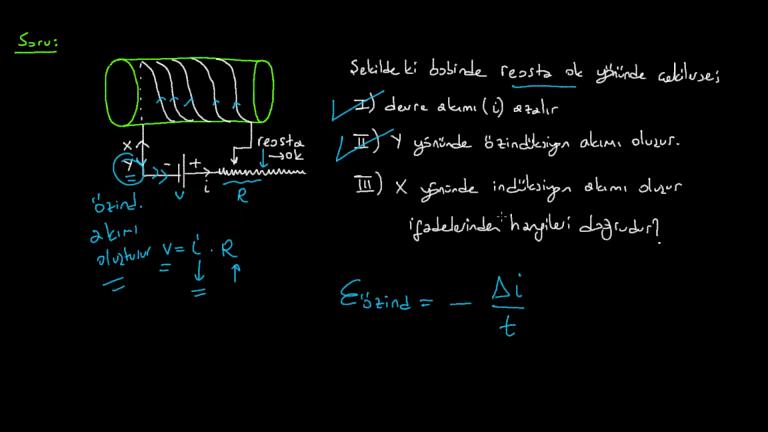 Soru:
Şekildeki bobinde reosta ok yönünde çekilirse;
I) devre akımı (i) azalır
II) Y yönünde özindüksiyon akımı oluşur.
III) X yönünde indüksiyon akımı oluşur
ifadelerinden hangileri doğrudur?
X
Y
- +
V
i
reosta
→ok
R
özind.
akımı
oluşturur
V = i · R
Ɛözind = - Δi
t